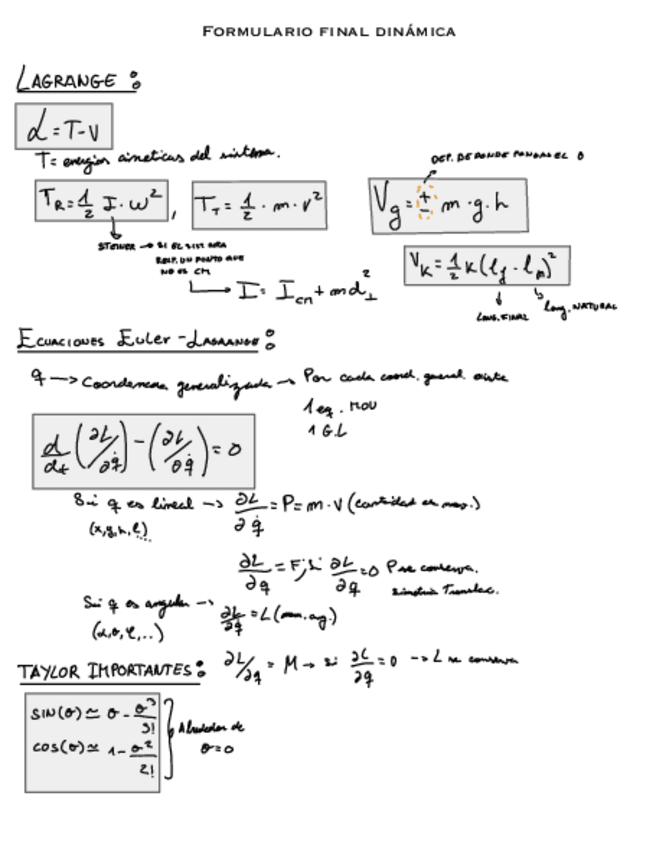 FORMULARIO FINAL DINÁMICA
LAGRANGE:
L = T - V
T = energías cinéticas del sistema.
DEP. DE DONDE PONGAS EL 0
T_R = 1/2 I · ω², T_T = 1/2 · m · v²
V_g = ± m · g · h
STEINER → SI EL SIST GIRA
RESP. UN PUNTO QUE
NO ES CM
V_K = 1/2 K (l_f - l_n)²
I = I_cm + md²_⊥
LONG. FINAL
long. NATURAL
ECUACIONES EULER-LAGRANGE:
q → Coordenada generalizada → Por cada coord. general. existe
1 eq. MOV
1 G.L
d/dt (∂L/∂q̇) - (∂L/∂q) = 0
Si q es lineal → ∂L/∂q̇ = P = m · v (cantidad de mov.)
(x, y, h, l)...
∂L/∂q = F; si ∂L/∂q = 0 P se conserva.
simetría Translac.
Si q es angular → ∂L/∂q̇ = L (mom. ang.)
(α, θ, φ, ...)
∂L/∂q = M → si ∂L/∂q = 0 → L se conserva
TAYLOR IMPORTANTES:
SIN(θ) ≃ θ - θ³/3!
COS(θ) ≃ 1 - θ²/2!
Alrededor de
θ = 0